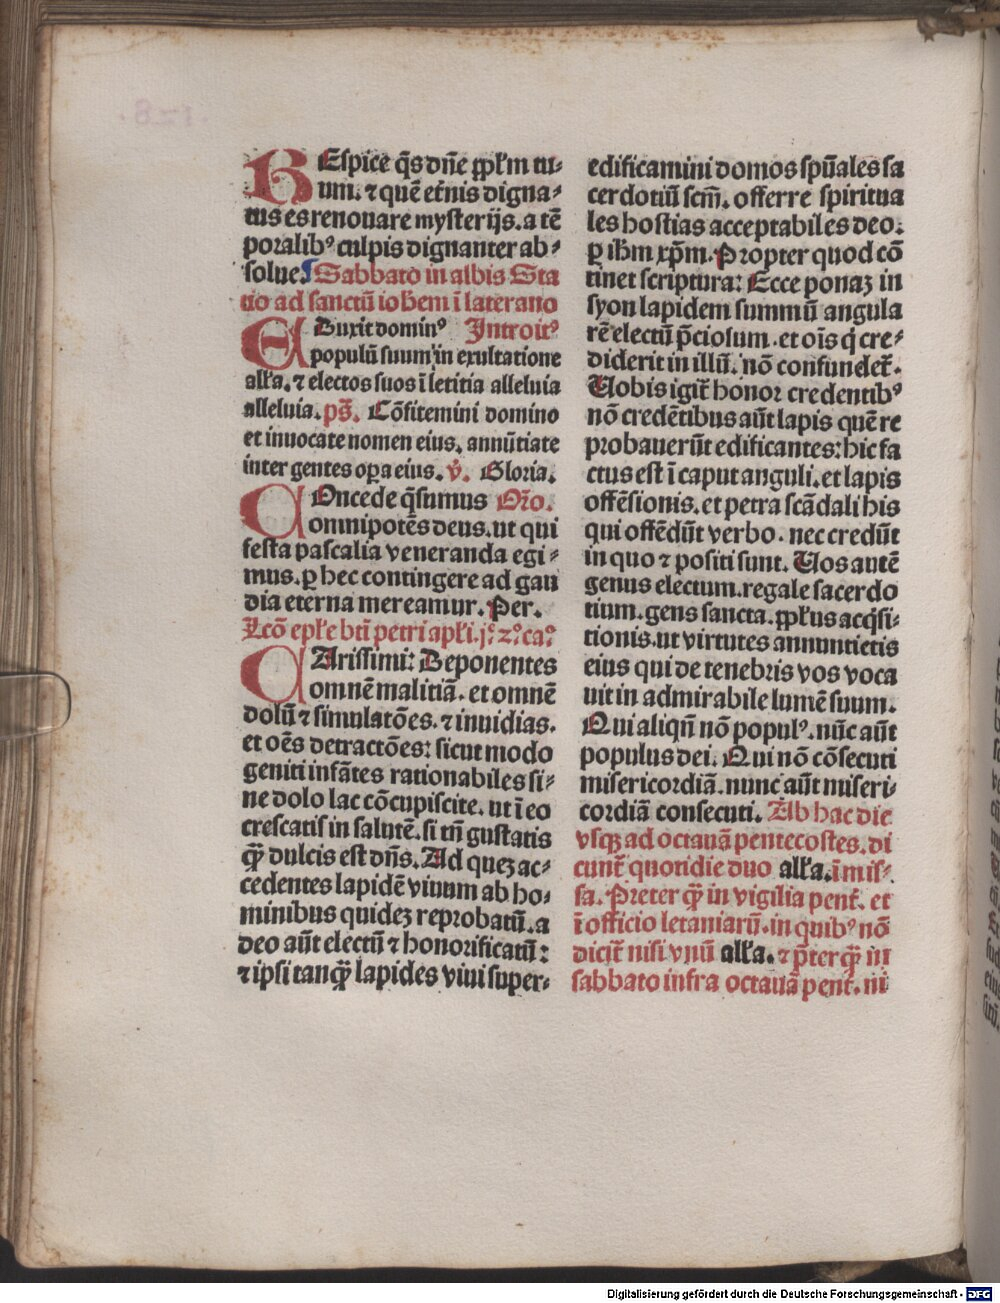 REspice q̄s dn̄e ꝓpl'm tu⸗
um. ⁊ quē et'nis digna⸗
tus es renouare mysterijs. a tē
poralibꝰ culpis dignanter ab⸗
solue. Sabbato in albis Sta
tio ad sanctū ioh'em ī laterano
EDuxit dominꝰ Introitꝰ
populū suum in exultatione
all'a. ⁊ electos suos ī letitia alleluia
alleluia. ps̄. Cōfitemini domino
et inuocate nomen eius. annūtiate
inter gentes oꝑa eius. v̄. Gloria.
COncede q̄sumus Or̄o.
omnipotēs deus. ut qui
festa pascalia veneranda egi⸗
mus. ꝑ hec contingere ad gau
dia eterna mereamur. Per.
Lcō epl'e bt̄i petri apl'i. j.ͦ z.ͦ ca.ͦ
CArissimi: Deponentes
omnē malitiā. et omnē
dolū ⁊ simulatōes. ⁊ inuidias.
et oēs detractōes: sicut modo
geniti infātes rationabiles si⸗
ne dolo lac cōcupiscite. ut ī eo
crescatis in salutē. si tn̄ gustatis
qꝫ̄ dulcis est dn̄s. Ad queꝫ ac⸗
cedentes lapidē viuum ab ho⸗
minibus quideꝫ reprobatū. a
deo aūt electū ⁊ honorificatū:
⁊ ipsi tanqꝫ̄ lapides viui super⸗
edificamini domos spūales sa
cerdotiū scm̄. offerre spiritua
les hostias acceptabiles deo.
ꝑ ih̄m xp̄m. Propter quod cō
tinet scriptura: Ecce ponaꝫ in
syon lapidem summū angula
rē electū p̄ciosum. et oīs q̇ cre⸗
diderit in illū. nō confundet'.
Uobis igit' honor credentibꝰ
nō credētibus aūt lapis quē re
probauerūt edificantes: hic fa
ctus est ī caput anguli. et lapis
offēsionis. et petra scādali his
qui offēdūt verbo. nec credūt
in quo ⁊ positi sunt. Uos autē
genus electum. regale sacerdo
tium. gens sancta. ꝓpl'us acq̇si⸗
tionis. ut virtutes annuntietis
eius qui de tenebris vos voca
uit in admirabile lumē suum.
Qui aliqn̄ nō populꝰ. nūc aūt
populus dei. Qui nō cōsecuti
misericordiā. nunc aūt miseri⸗
cordiā consecuti. Ab hac die
vsqꝫ ad octauā pentecostes. di
cunt' quotidie duo all'a. ī mis⸗
sa. Preter qꝫ̄ in vigilia pent'. et
ī officio letaniarū. in quibꝰ nō
dicit' nisi vnū all'a. ⁊ p̄ter qꝫ̄ in
sabbato infra octauā pent'. ni
Digitalisierung gefördert durch die Deutsche Forschungsgemeinschaft - DFG